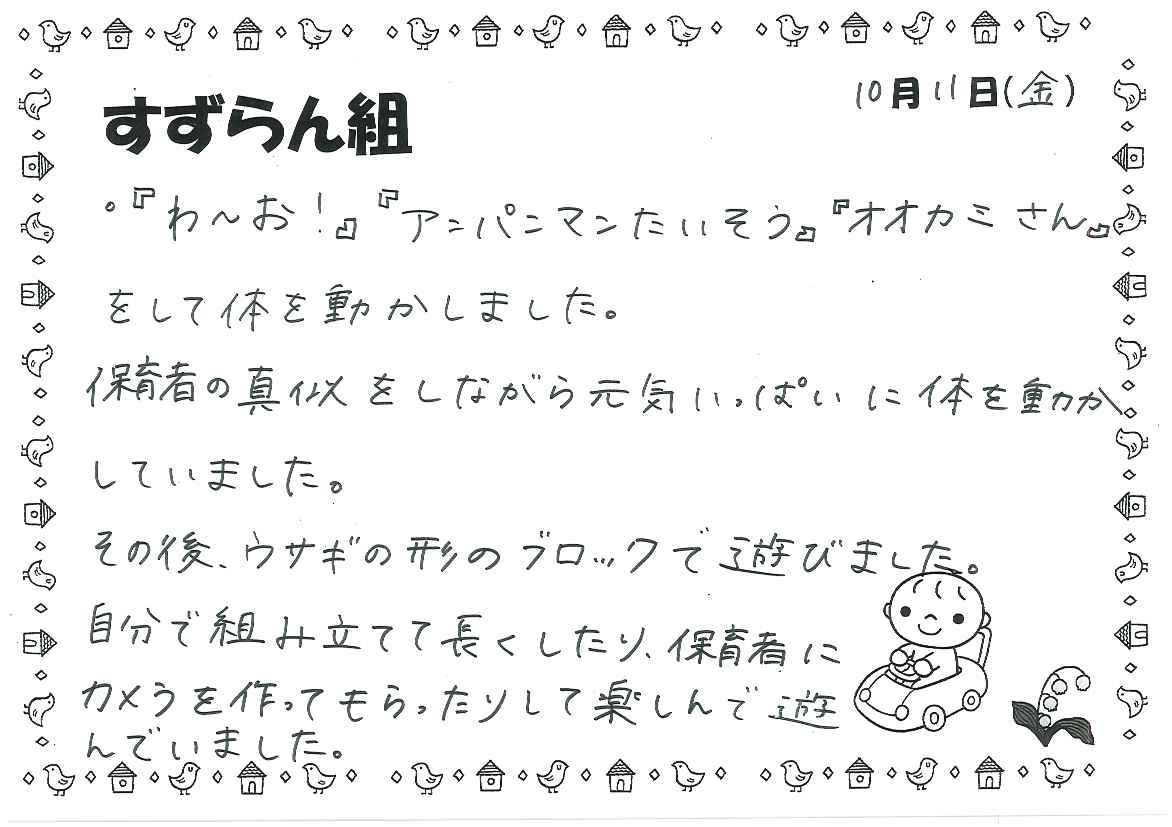 すずらん組
10月11日(金)
・『わ～お！』『アンパンマンたいそう』『オオカミさん』
をして体を動かしました。
保育者の真似をしながら元気いっぱいに体を動か
していました。
その後、ウサギの形のブロックで遊びました。
自分で組み立てて長くしたり、保育者に
カメラを作ってもらったりして楽しんで遊
んでいました。